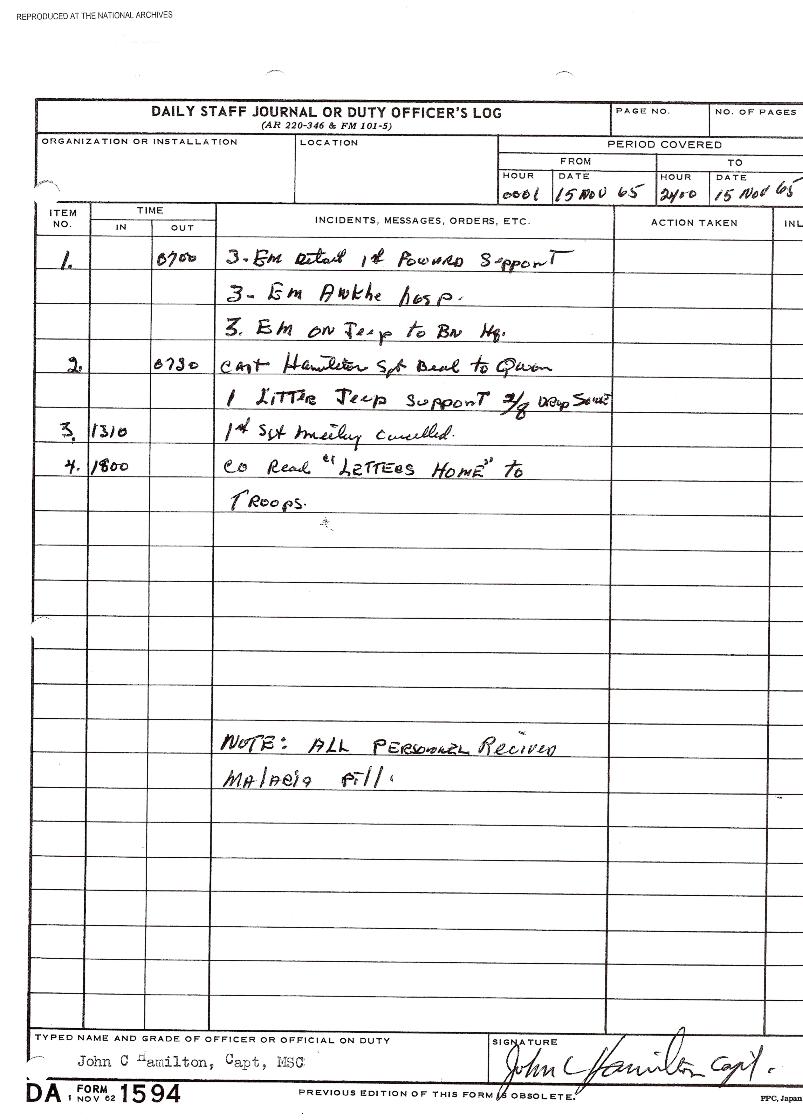 REPRODUCED AT THE NATIONAL ARCHIVES
DAILY STAFF JOURNAL OR DUTY OFFICER'S LOG
(AR 220-346 & FM 101-5)
PAGE NO.
NO. OF PAGES
ORGANIZATION OR INSTALLATION
LOCATION
PERIOD COVERED
FROM
TO
HOUR
DATE
HOUR
DATE
0001
15 NOV 65
2400
15 NOV 65
ITEM NO.
TIME
IN
OUT
INCIDENTS, MESSAGES, ORDERS, ETC.
ACTION TAKEN
INL
1. 0700 3-EM Detail 1st Foward Support
3- EM Ankhe hosp.
3. EM ON Jeep to BN Hq.
2. 0730 Capt Hamilton Sgt Beal to Qwon
1 LITTER Jeep Support 2/8 Drop
3. 1310 1st Sgt meeting cancelled.
4. 1800 CO Read "LETTERS HOME" to
TROOPS.
NOTE: ALL PERSONNEL Recived
MAlAria Pill.
TYPED NAME AND GRADE OF OFFICER OR OFFICIAL ON DUTY
John C Hamilton, Capt, MSC
SIGNATURE
John C Hamilton Capt.
DA FORM 1594
1 NOV 62
PREVIOUS EDITION OF THIS FORM IS OBSOLETE.
PPC, Japan